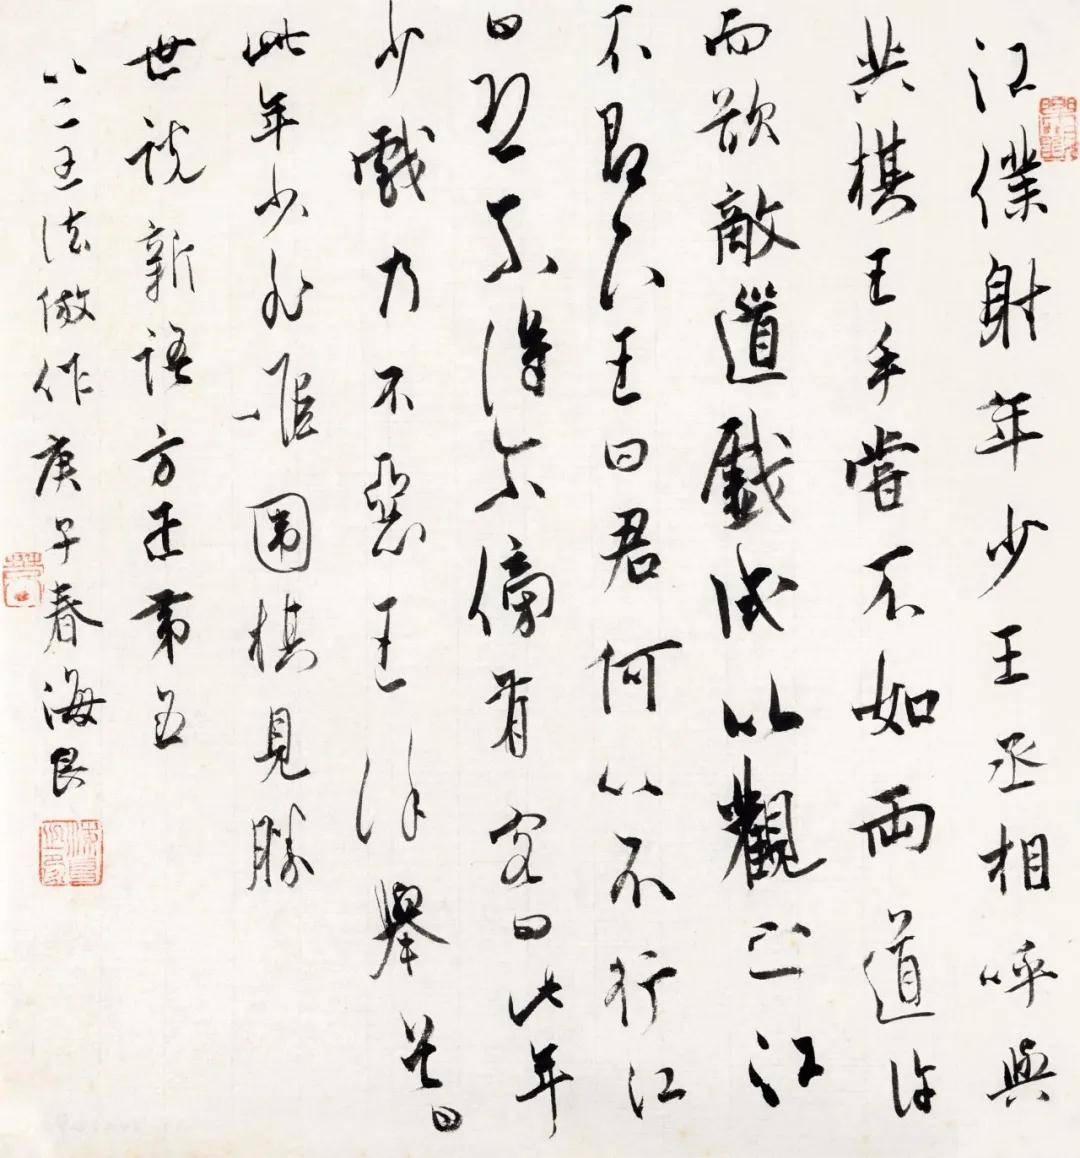 江僕射年少王丞相呼與
共棋王手嘗不如兩道許
而欲敵道戲試以觀之江
不即下王曰君何以不行江
曰恐不得爾傍有客曰此年
少戲乃不惡王徐舉首曰
此年少非唯圍棋見勝
世說新語方正第五
以二王法倣作庚子春海良